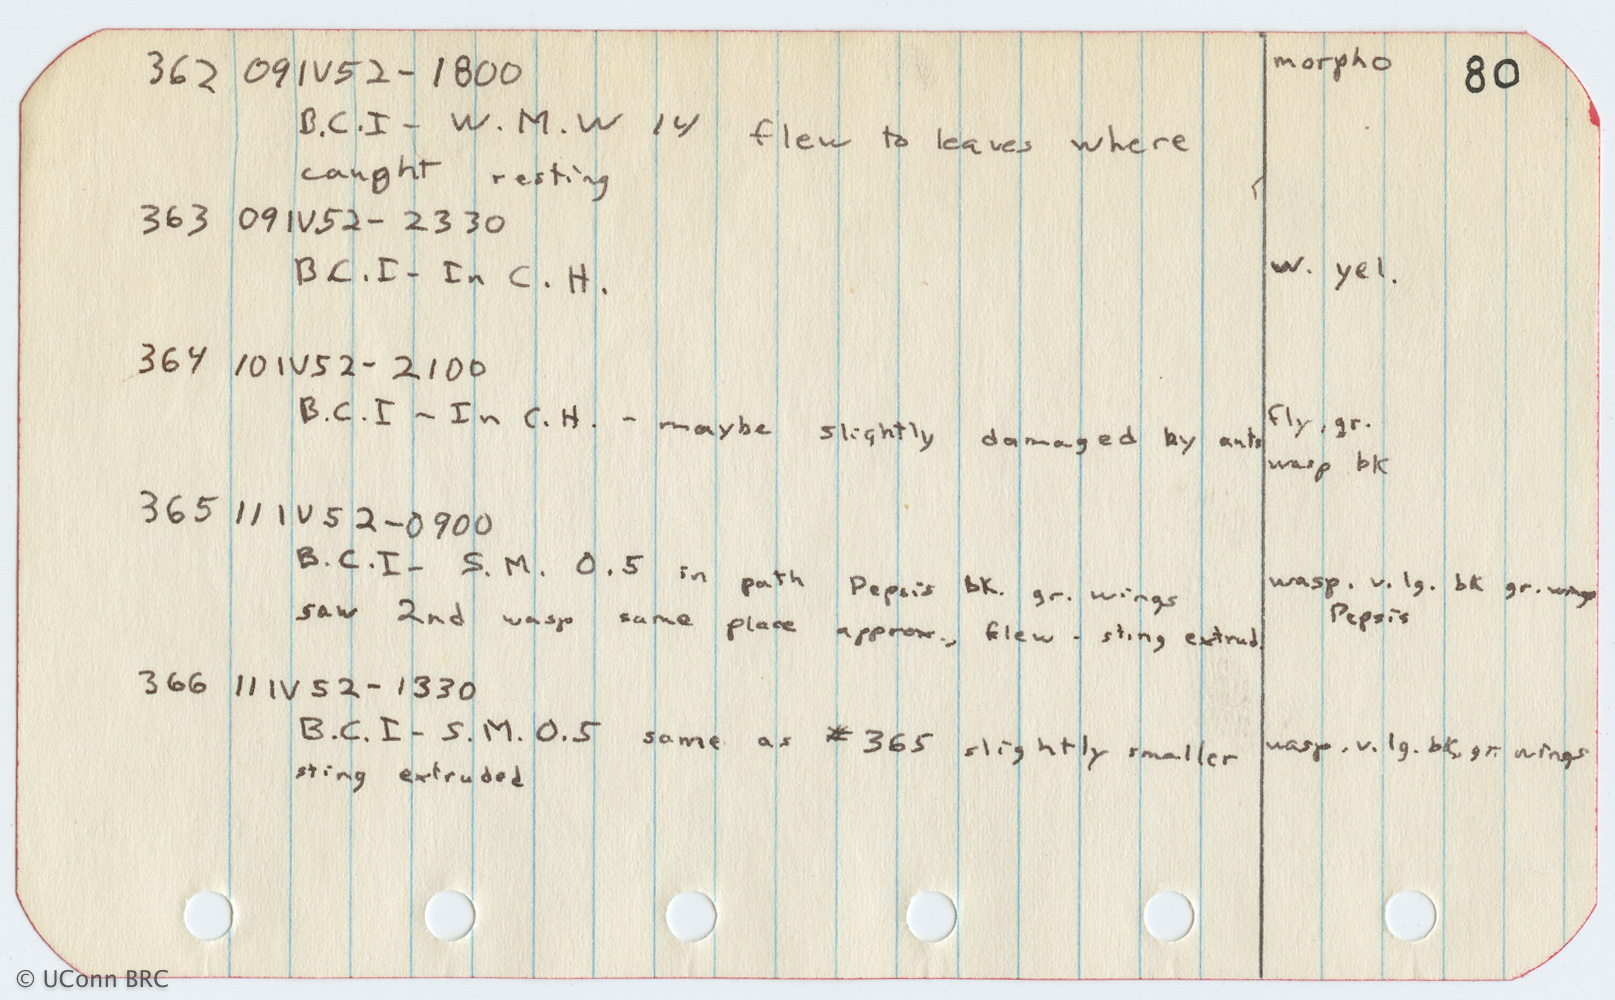 80
362 09IV52-1800 morpho
B.C.I - W.M.W 14 flew to leaves where
caught resting
363 09IV52-2330
B.C.I - In C.H. w. yel.
364 10IV52-2100
B.C.I - In C.H. - maybe slightly damaged by ants fly, gr.
wasp bk
365 11IV52-0900
B.C.I - S.M. 0.5 in path Pepsis bk. gr. wings wasp. v. lg. bk gr. wings
saw 2nd wasp same place approx., flew - sting extrud. Pepsis
366 11IV52-1330
B.C.I - S.M. 0.5 same as #365 slightly smaller wasp. v. lg. bk, gr. wings
sting extruded
© UConn BRC